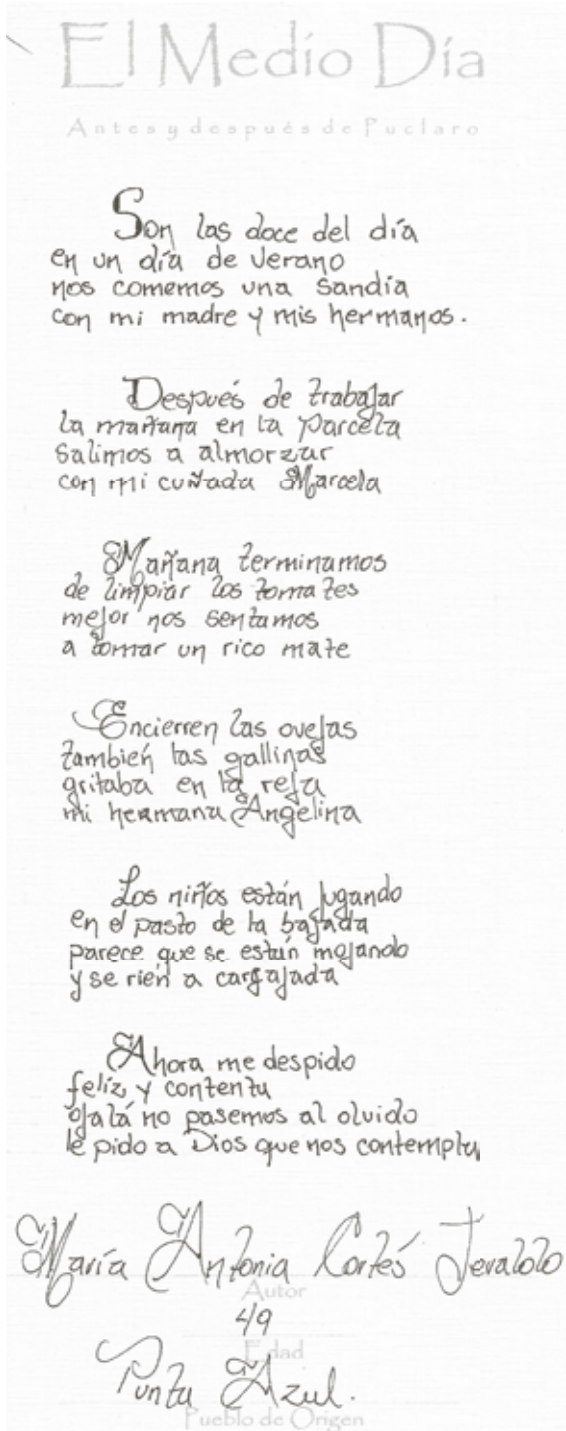 El Medio Día
Antes y después de Puclaro
Son las doce del día
en un día de verano
nos comemos una Sandía
con mi madre y mis hermanos.
Después de trabajar
la mañana en la parcela
salimos a almorzar
con mi cuñada Marcela
Mañana terminamos
de limpiar los tomates
mejor nos sentamos
a tomar un rico mate
Encierren las ovejas
también las gallinas
gritaba en la reja
mi hermana Angelina
Los niños están jugando
en el pasto de la bajada
parece que se están mojando
y se rien a cargajada
Ahora me despido
feliz y contenta
ojalá no pasemos al olvido
le pido a Dios que nos contempla
María Antonia Cortés
Autor
49
Edad
Punta Azul.
Pueblo de Origen